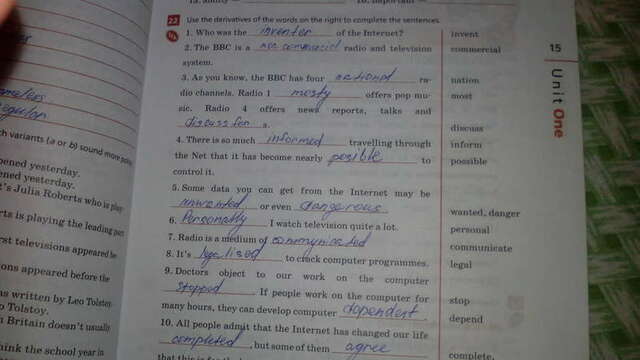 22 Use the derivatives of the words on the right to complete the sentences.
1. Who was the inventer of the Internet? invent
2. The BBC is a non commercial radio and television commercial
system.
3. As you know, the BBC has four national ra- nation
dio channels. Radio 1 mosty offers pop mu- most
sic. Radio 4 offers news reports, talks and
discussion s. discuss
4. There is so much informed travelling through inform
the Net that it has become nearly posible to possible
control it.
5. Some data you can get from the Internet may be
unwanted or even dangerous wanted, danger
6. Personally I watch television quite a lot. personal
7. Radio is a medium of communicated communicate
8. It's legalised to crack computer programmes. legal
9. Doctors object to our work on the computer
stopped. If people work on the computer for stop
many hours, they can develop computer dependent. depend
10. All people admit that the Internet has changed our life
completed, but some of them agree complete,
15
Unit One
ometers
egulor
ch variants (a or b) sound more
pened yesterday.
ened yesterday.
t's Julia Roberts who is play-
rts is playing the leading part
rst televisions appeared be
ions appeared before the
as written by Leo Tolstoy.
o Tolstoy.
n Britain doesn't usually
hink the school year in